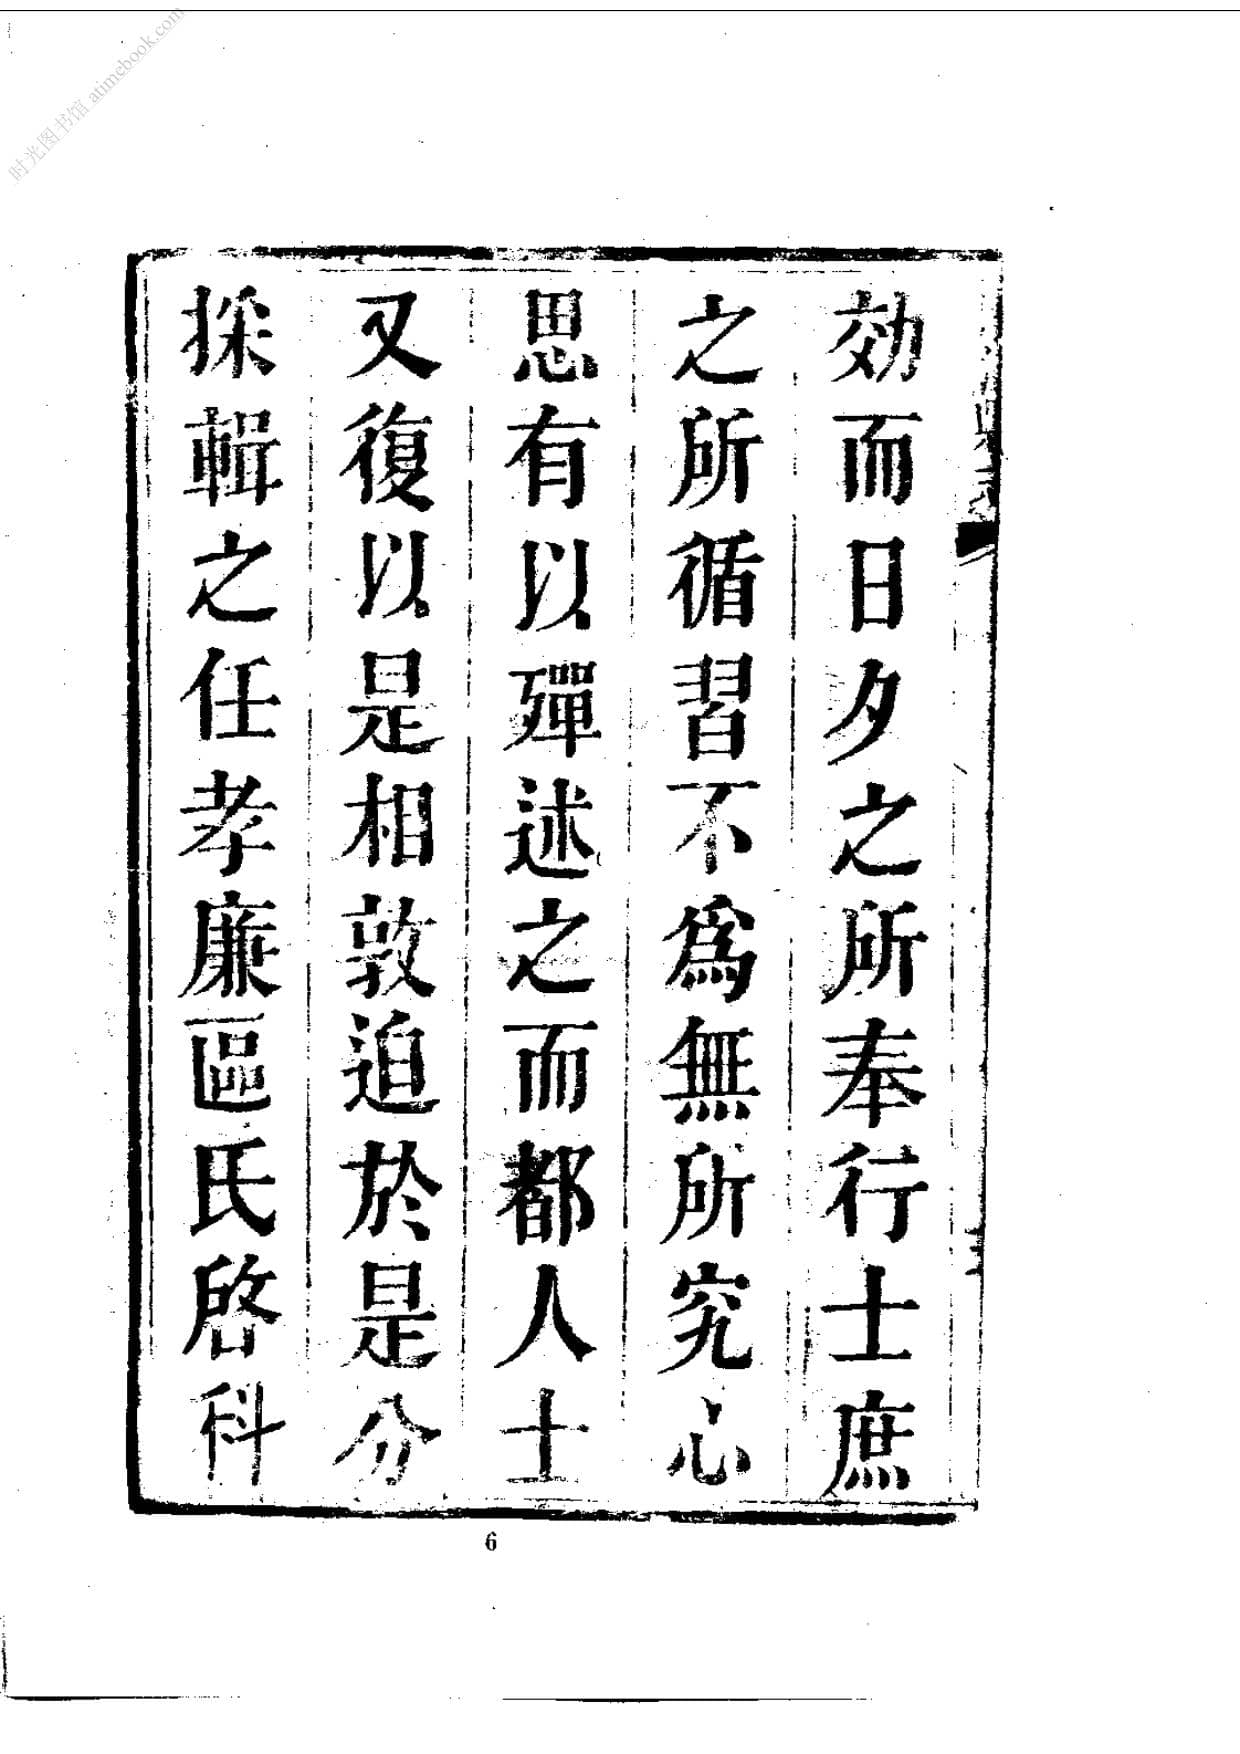 时光图书馆 atimebook.com
効而日夕之所奉行士庶
之所循習不爲無所究心
思有以殫述之而都人士
又復以是相敦迫於是分
採輯之任孝廉區氏啓科
6